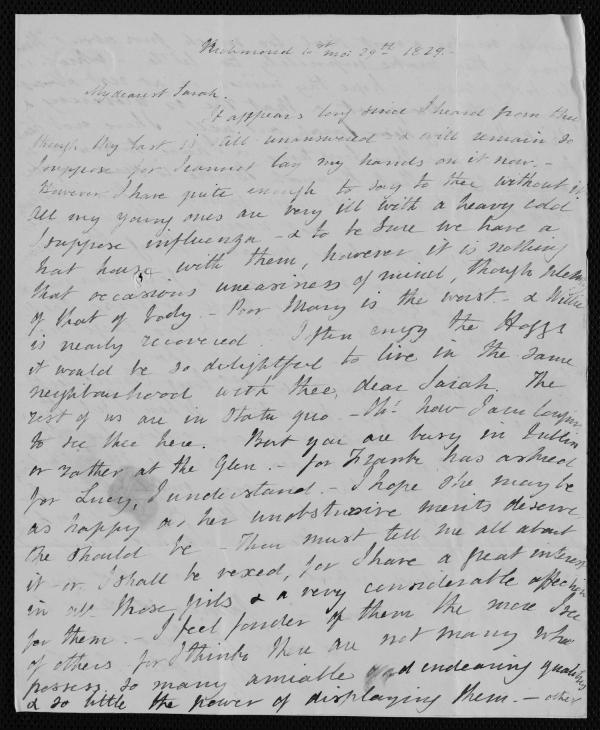 Richmond 10th mo: 29th 1829.-
My dearest Sarah.
It appears long since I heard from thee
though thy last is still unanswered & will remain so
I suppose for I cannot lay my hands on it now.-
However I have quite enough to say to thee without it
All my young ones are very ill with a heavy cold
I suppose influenza - & to be sure we have a
hat house with them, however it is nothing
that occasions uneasiness of mind, though
of that of body.- Poor Mary is the worst - & Willie
is nearly recovered. I often enjoy the Hoggs
it would be so delightful to live in the same
neighbourhood with thee, dear Sarah. The
rest of us are in Statu quo.- Oh! how I am longing
to see thee here. But you are busy in Dublin
or rather at the Glen.- for Frank has asked
for Lucy, I understand.- I hope she may be
as happy as her unobtrusive merits deserve
she should be - Thou must tell me all about
it or I shall be vexed, for I have a great interest
in all those girls & a very considerable affection
for them.- I feel fonder of them the more I see
of others for I think there are not many who
possess so many amiable and endearing qualities
& so little the power of displaying them.- other